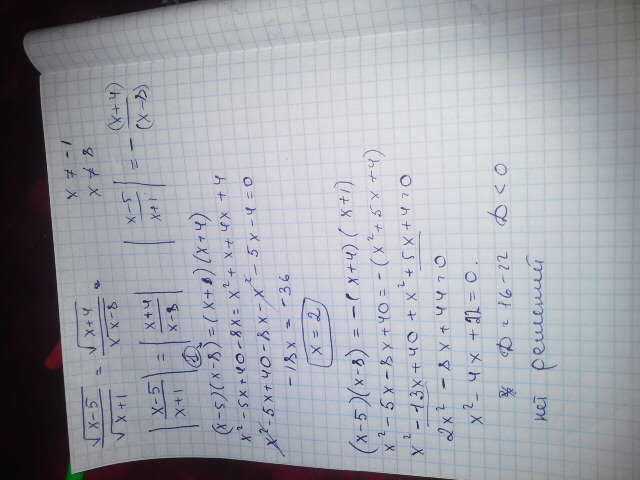 √(x-5)/√(x+1) = √(x+4)/√(x-8)
x ≠ -1
x ≠ 8
|(x-5)/(x+1)| = |(x+4)/(x-8)|
|(x-5)/(x+1)| = -(x+4)/(x-8)
① (x-5)(x-8) = (x+1)(x+4)
x² - 5x + 40 - 8x = x² + x + 4x + 4
x² - 5x + 40 - 8x - x² - 5x - 4 = 0
-18x = -36
x = 2
(x-5)(x-8) = -(x+4)(x+1)
x² - 5x - 8x + 40 = -(x² + 5x + 4)
x² - 13x + 40 + x² + 5x + 4 = 0
2x² - 8x + 44 = 0
x² - 4x + 22 = 0.
D = 16 - 22 D < 0
нет решений